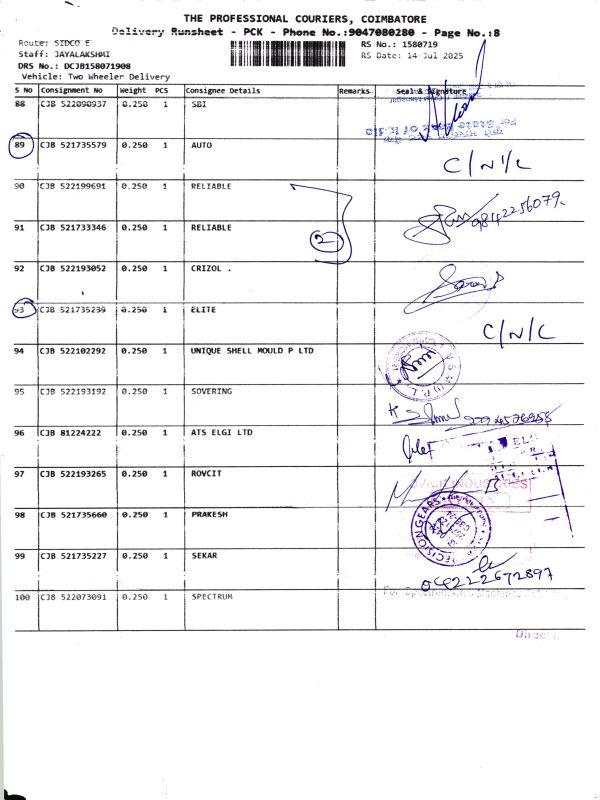 THE PROFESSIONAL COURIERS, COIMBATORE
Delivery Runsheet - PCK - Phone No.:9047080280 - Page No.:8
Route: SIDCO E
RS No.: 1580719
Staff: JAYALAKSHMI
RS Date: 14 Jul 2025
DRS No.: DCJB158071908
Vehicle: Two Wheeler Delivery
S No Consignment No Weight PCS Consignee Details Remarks Seal & Signature
88 CJB 522090937 0.250 1 SBI
89 CJB 521735579 0.250 1 AUTO
C/N/L
90 CJB 522199691 0.250 1 RELIABLE
9842256079
91 CJB 521733346 0.250 1 RELIABLE
2
92 CJB 522193052 0.250 1 CRIZOL .
93 CJB 521735239 0.250 1 ELITE
C/N/L
94 CJB 522102292 0.250 1 UNIQUE SHELL MOULD P LTD
95 CJB 522193192 0.250 1 SOVERING
96 CJB 81224222 0.250 1 ATS ELGI LTD
97 CJB 522193265 0.250 1 ROVCIT
98 CJB 521735660 0.250 1 PRAKESH
99 CJB 521735227 0.250 1 SEKAR
100 CJB 522073091 0.250 1 SPECTRUM